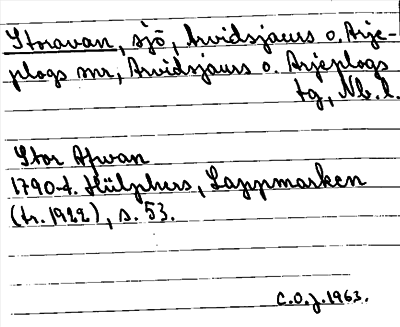 Storavan, sjö, Arvidsjaurs o. Arje-
plogs snr, Arvidsjaurs o. Arjeplogs
tg, Nb. l.
Stor Afwan
1790-t. Hülphers, Lappmarken
(tr. 1922), s. 53.
C.O.J. 1963.